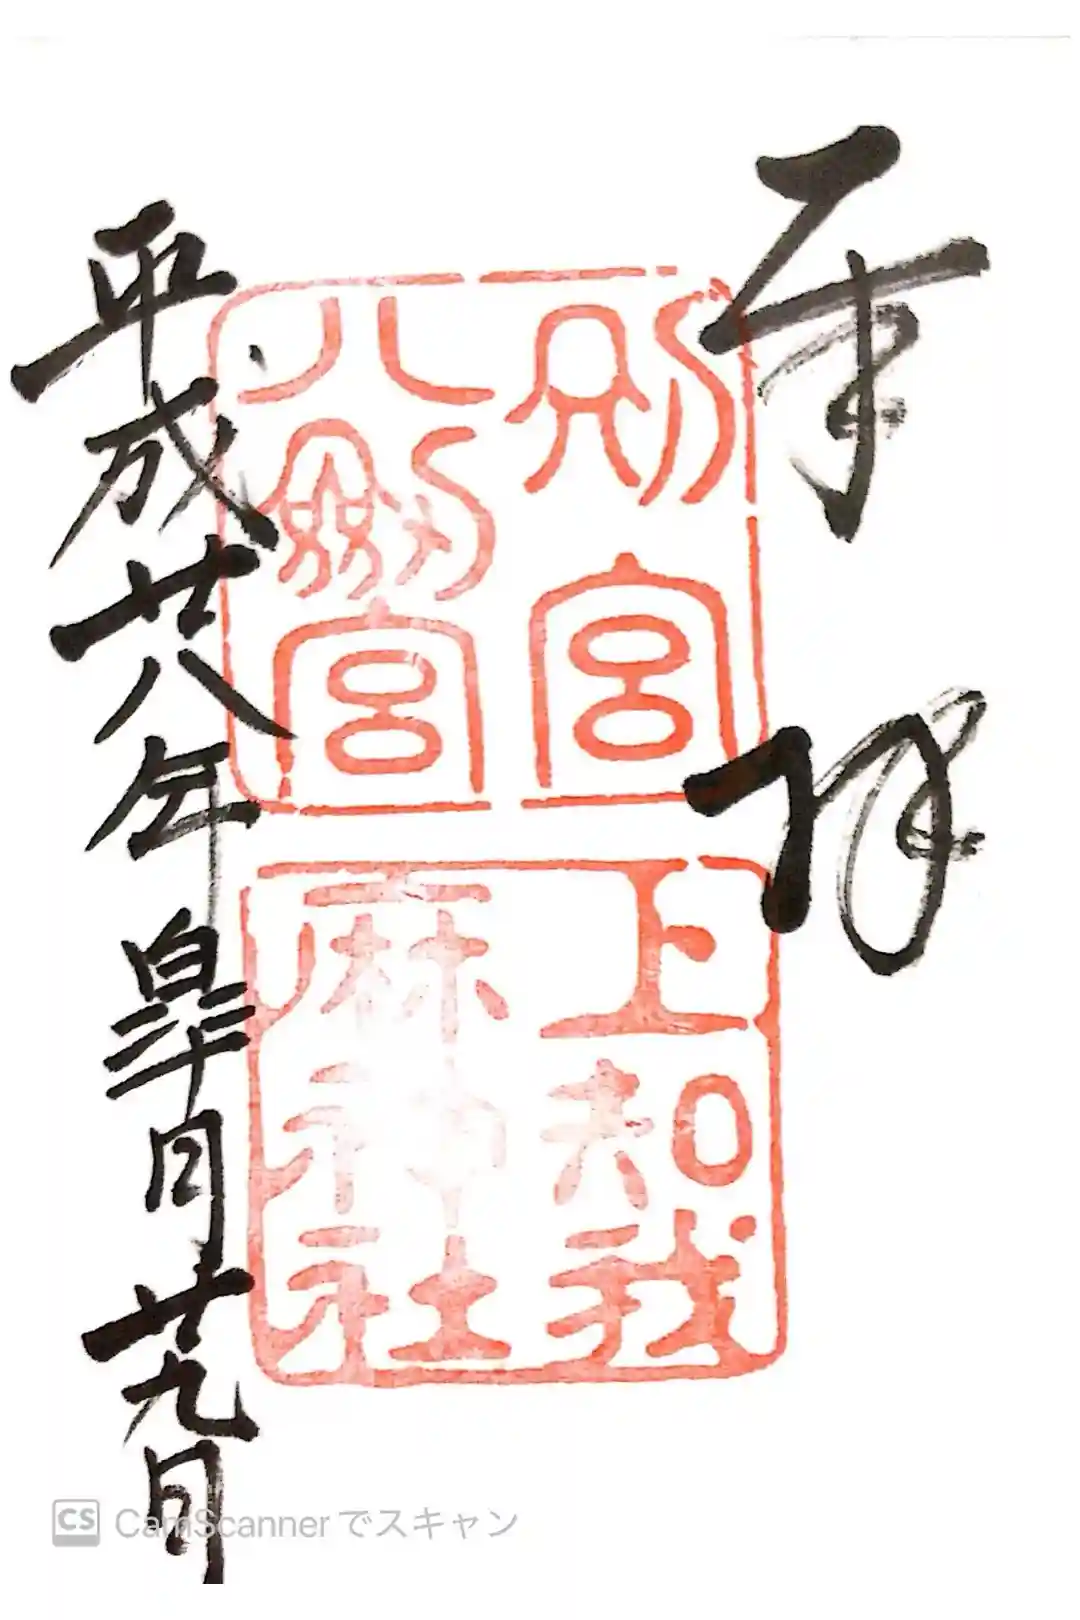 奉拝
別宮
八劔宮
上知我
麻神社
平成廿八年皐月廿九日
CS CamScannerでスキャン